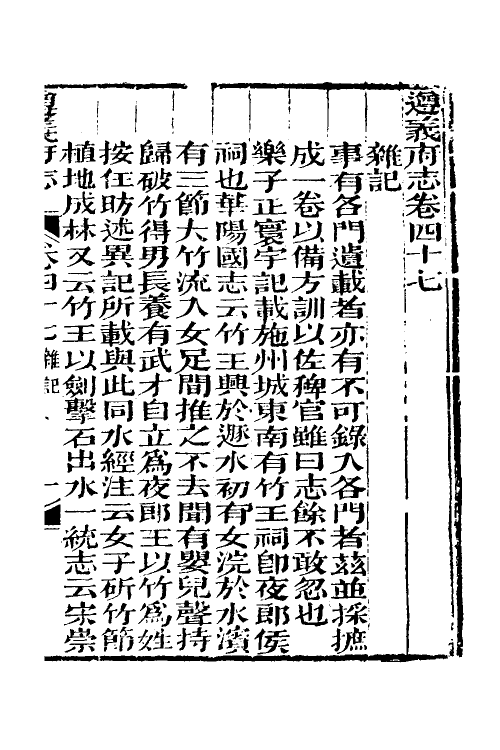 遵義府志卷四十七
雜記
事有各門遺載者亦有不可錄入各門者茲並採摭
成一卷以備方訓以佐稗官雖曰志餘不敢忽也
樂子正寰宇記載施州城東南有竹王祠卽夜郎侯
祠也華陽國志云竹王興於遯水初有女浣於水濱
有三節大竹流入女足間推之不去聞有嬰兒聲持
歸破竹得男長養有武才自立爲夜郎王以竹爲姓
按任昉述異記所載與此同水經注云女子斫竹節
植地成林又云竹王以劍擊石出水一統志云宋崇
遵義府志 卷四十七 雜記 一